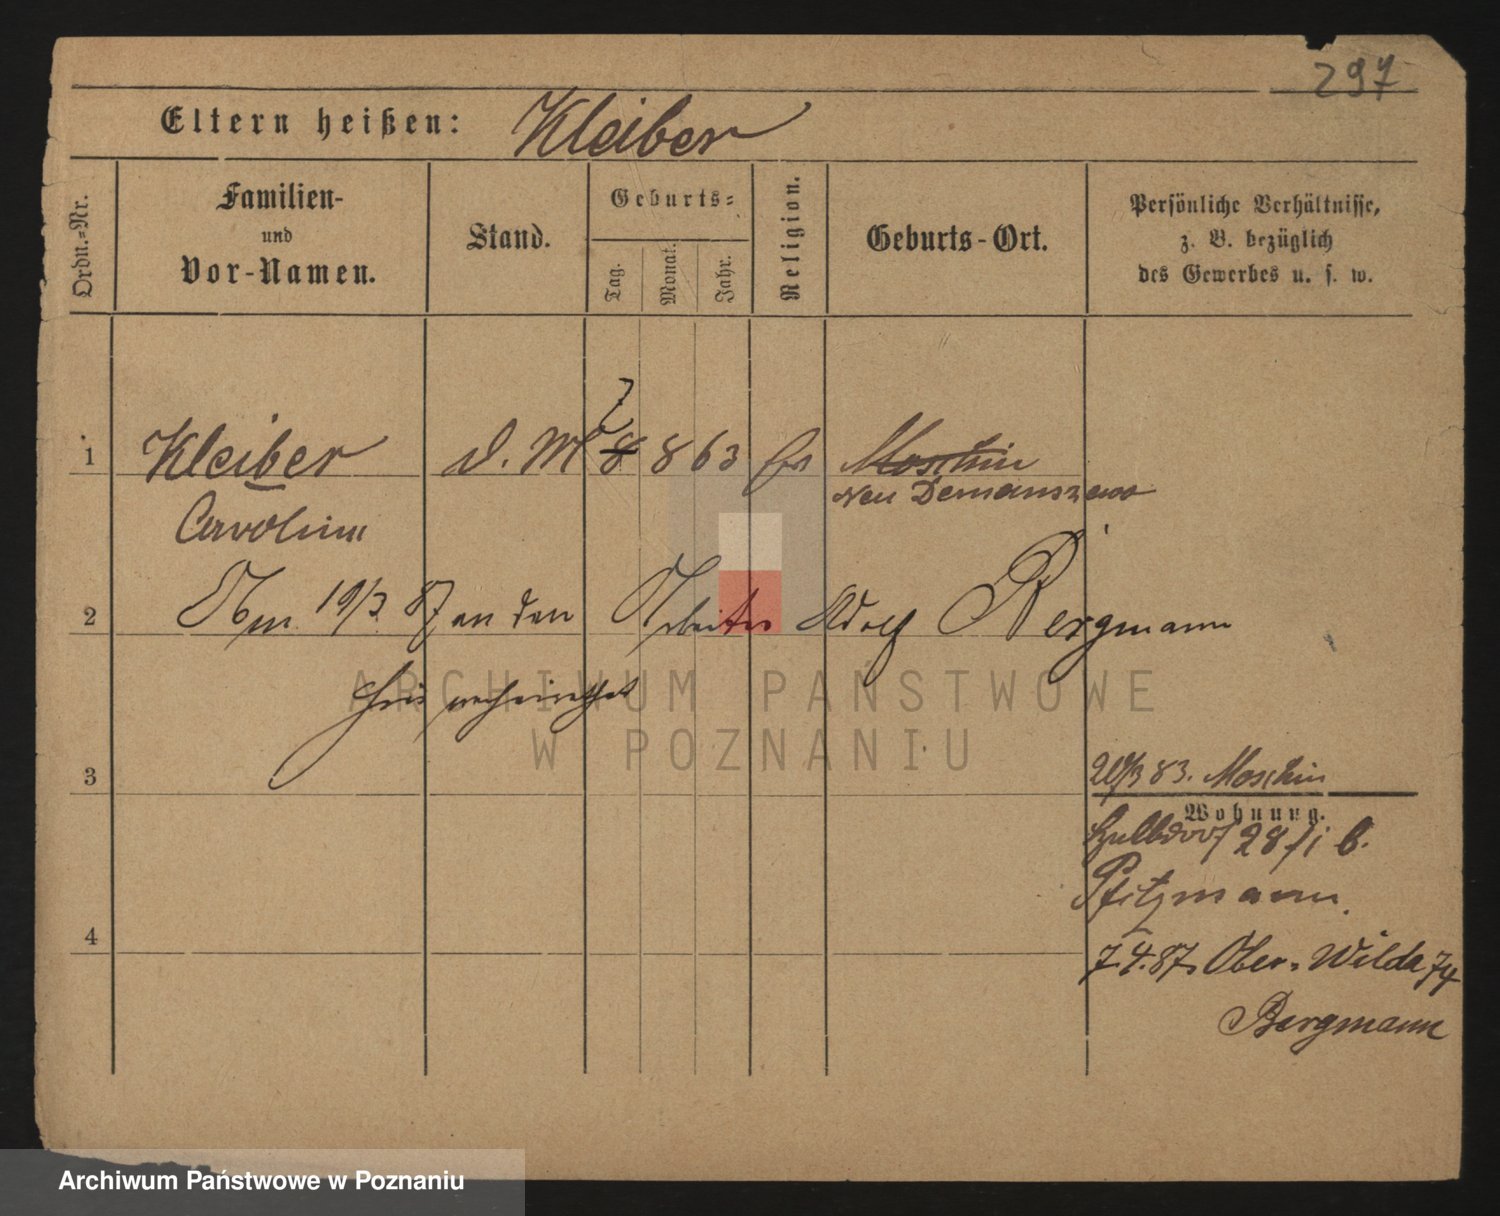 297
Eltern heißen: Kleiber
Ordn.=Nr.
Familien-
und
Vor-Namen.
Stand.
Geburts=
Tag.
Monat.
Jahr.
Religion.
Geburts-Ort.
Persönliche Verhältnisse,
z. B. bezüglich
des Gewerbes u. s. w.
1 Kleiber D. M 8 7 8 63 Moschin
Neu Demanszewo
Carolina
2 Am 19/3 87 an den Arbeiter Adolf Bergmann
hier verheirathet
ARCHIWUM PAŃSTWOWE
W POZNANIU
3
83. Moschin
Wohnung.
28/1 b.
Pfitzmann.
4
7.4.87. Ober-Wilda 74
Bergmann
Archiwum Państwowe w Poznaniu